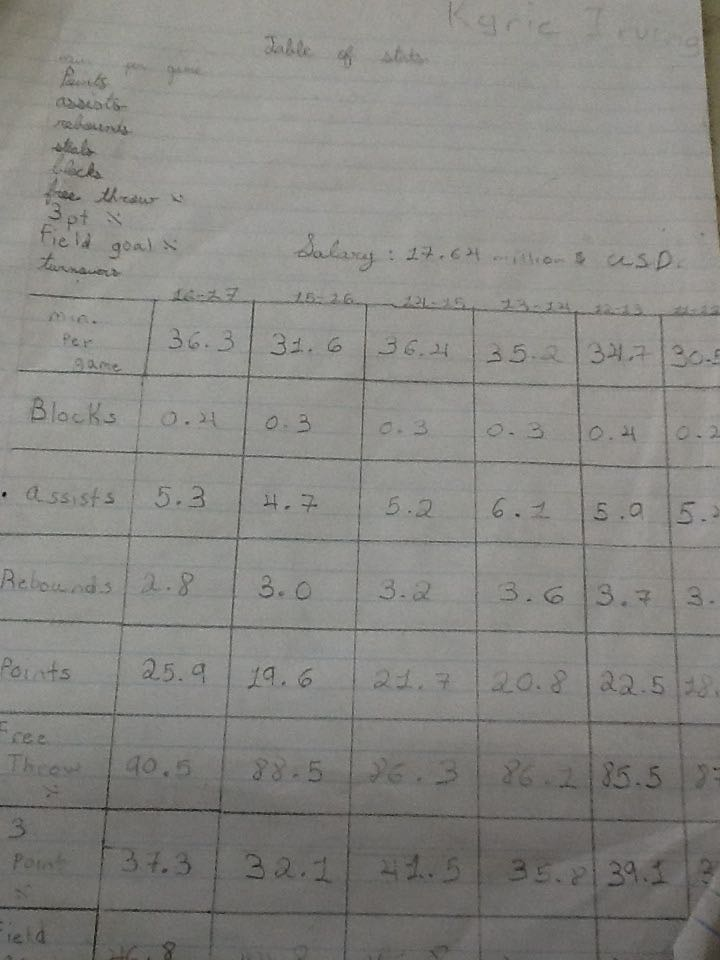 Kyrie Irving
Table of stats
min per game
Points
assists
rebounds
steals
blocks
free throw %
3 pt %
Field goal %
turnovers
Salary: 17.64 million $ USD.
16-17 15-16 14-15 13-14 12-13 11-12
min. Per game 36.3 31.6 36.4 35.2 34.7 30.5
Blocks 0.4 0.3 0.3 0.3 0.4 0.2
. assists 5.3 4.7 5.2 6.1 5.9 5.
Rebounds 2.8 3.0 3.2 3.6 3.7 3.
Points 25.9 19.6 21.7 20.8 22.5 18.
Free Throw % 90.5 88.5 86.3 86.1 85.5 87
3 Point % 37.3 32.1 41.5 35.8 39.1 3
Field 46.8